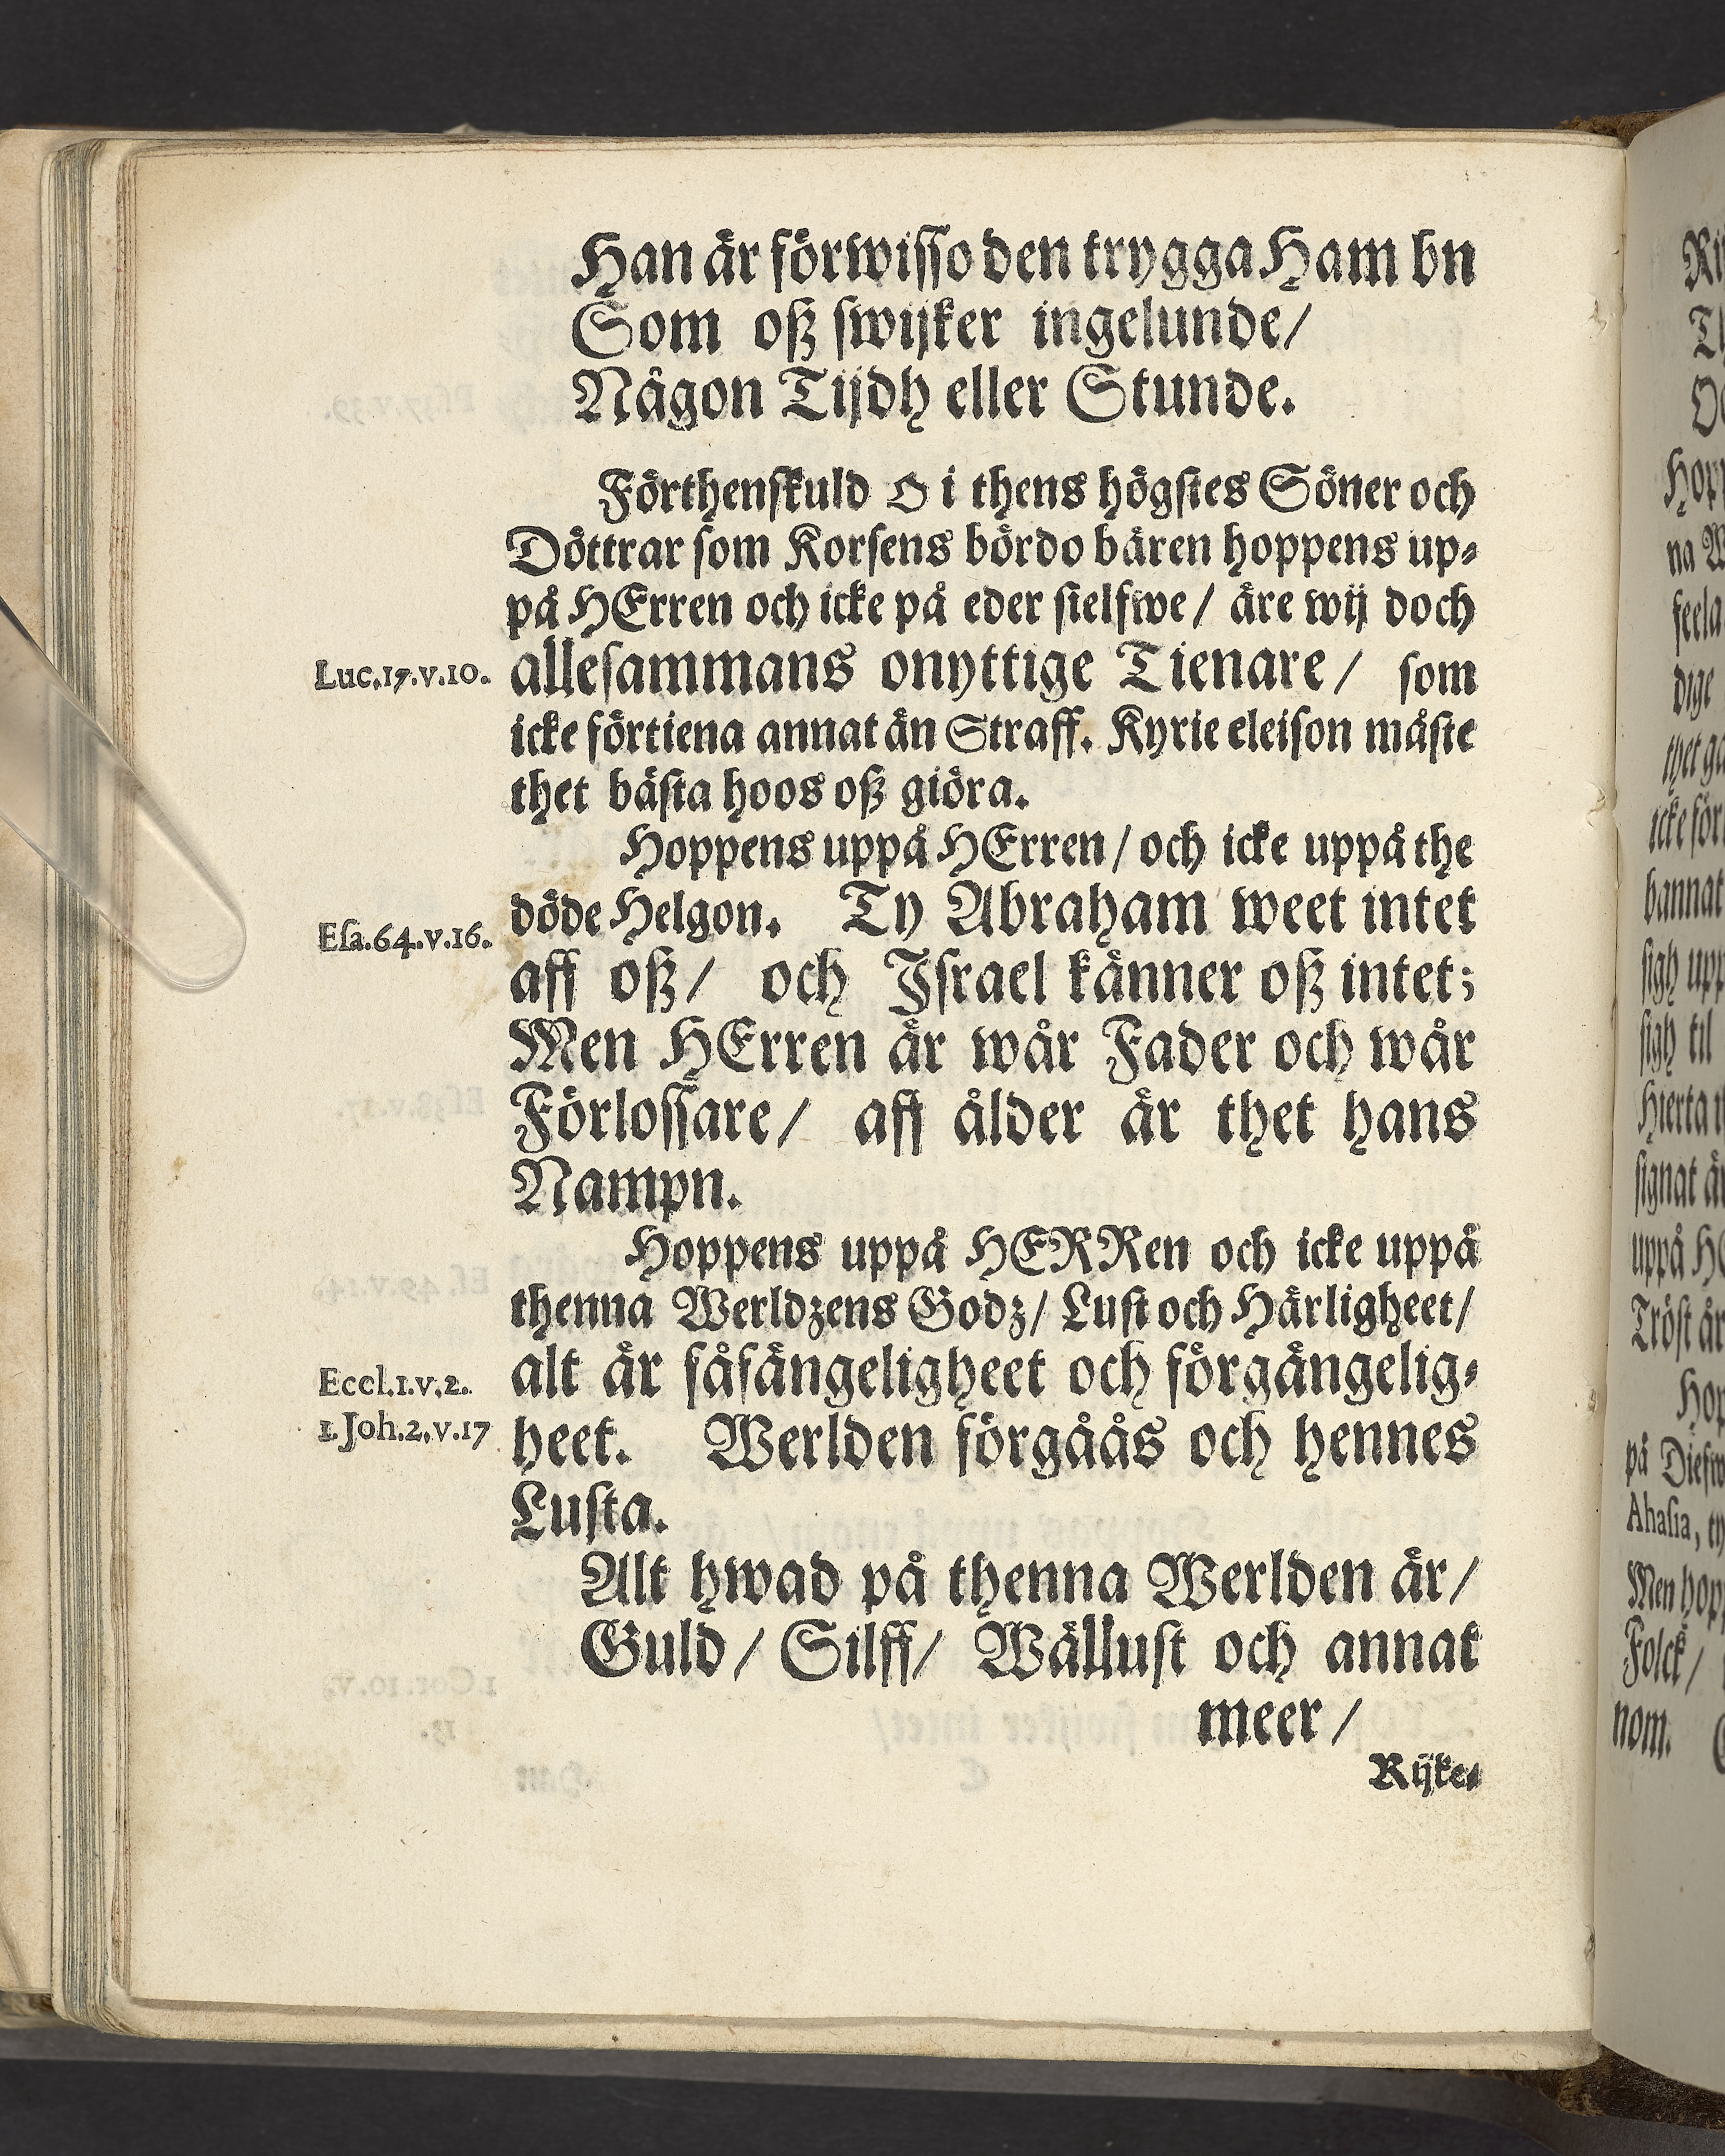 Han är förwisso den trygga Ham bn
Som oß swijker ingelunde/
Någon Tijdh eller Stunde.
Förthenskuld O i thens högstes Söner och
Döttrar som Korsens bördo bären hoppens up-
på HErren och icke på eder sielfwe/ äre wij doch
Luc.17.v.10. allesammans onyttige Tienare/ som
icke förtiena annat än Straff. Kyrie eleison måste
thet bästa hoos oß giöra.
Hoppens uppå HErren/ och icke uppå the
Esa.64.v.16. döde Helgon. Ty Abraham weet intet
aff oß/ och Israel känner oß intet;
Men HErren är wår Fader och wår
Förlossare/ aff ålder är thet hans
Nampn.
Hoppens uppå HERRen och icke uppå
thenna Werldzens Godz/ Lust och Härligheet/
Eccl.1.v.2. alt är fåfängeligheet och förgängelig-
1.Joh.2.v.17 heet. Werlden förgåås och hennes
Lusta.
Alt hwad på thenna Werlden är/
Guld/ Silff/ Wällust och annat
meer/
Rijke-